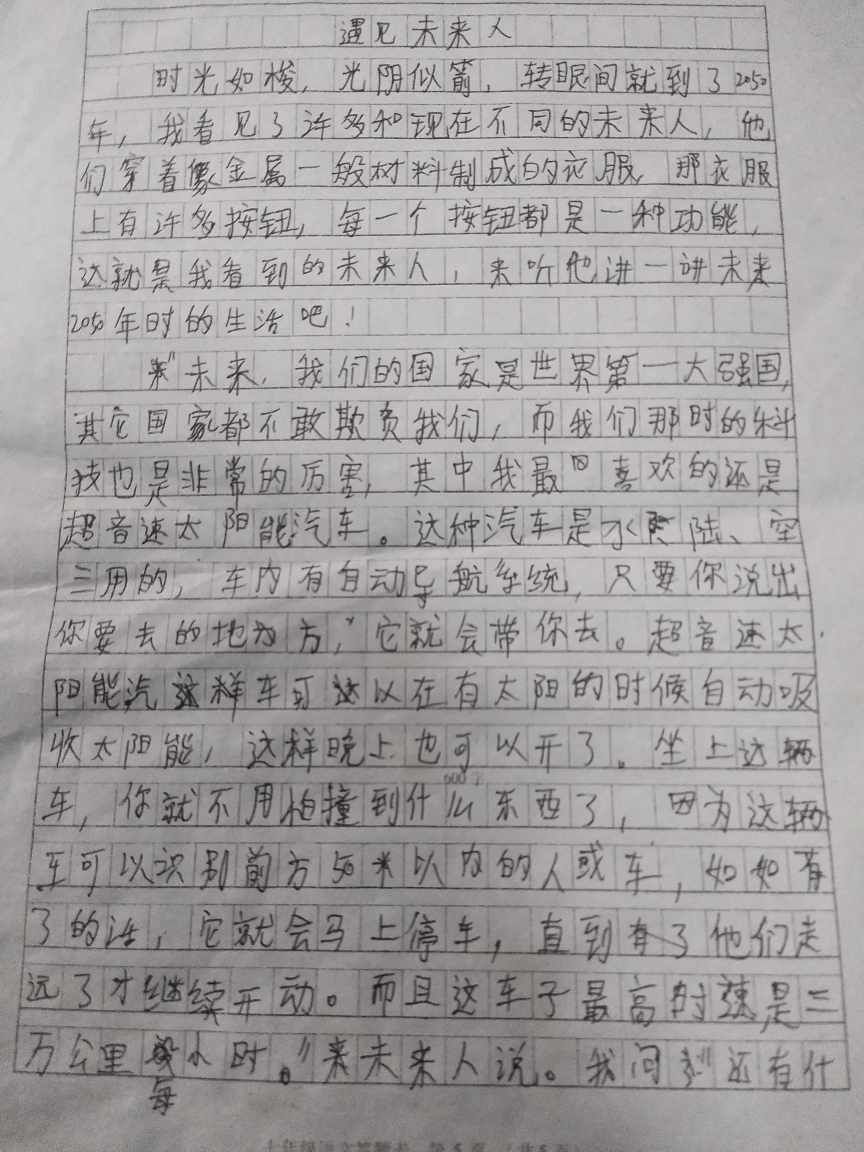 遇见未来人
时光如梭，光阴似箭，转眼间就到了2050
年，我看见了许多和现在不同的未来人，他
们穿着像金属一般材料制成的衣服，那衣服
上有许多按钮，每一个按钮都是一种功能，
这就是我看到的未来人，来听他讲一讲未来
2050年时的生活吧！
"未来，我们的国家是世界第一大强国，
其它国家都不敢欺负我们，而我们那时的科
技也是非常的厉害，其中我最喜欢的还是
超音速太阳能汽车。这种汽车是水陆、空
三用的，车内有自动导航系统，只要你说出
你要去的地方，它就会带你去。超音速太
阳能汽车可以在有太阳的时候自动吸
收太阳能，这样晚上也可以开了。坐上这辆
600字
车，你就不用怕撞到什么东西了，因为这辆
车可以识别前方50米以内的人或车，如如有
了的话，它就会马上停车，直到有了他们走
远了才继续开动。而且这车子最高时速是三
万公里每小时。"未来人说。我问："还有什